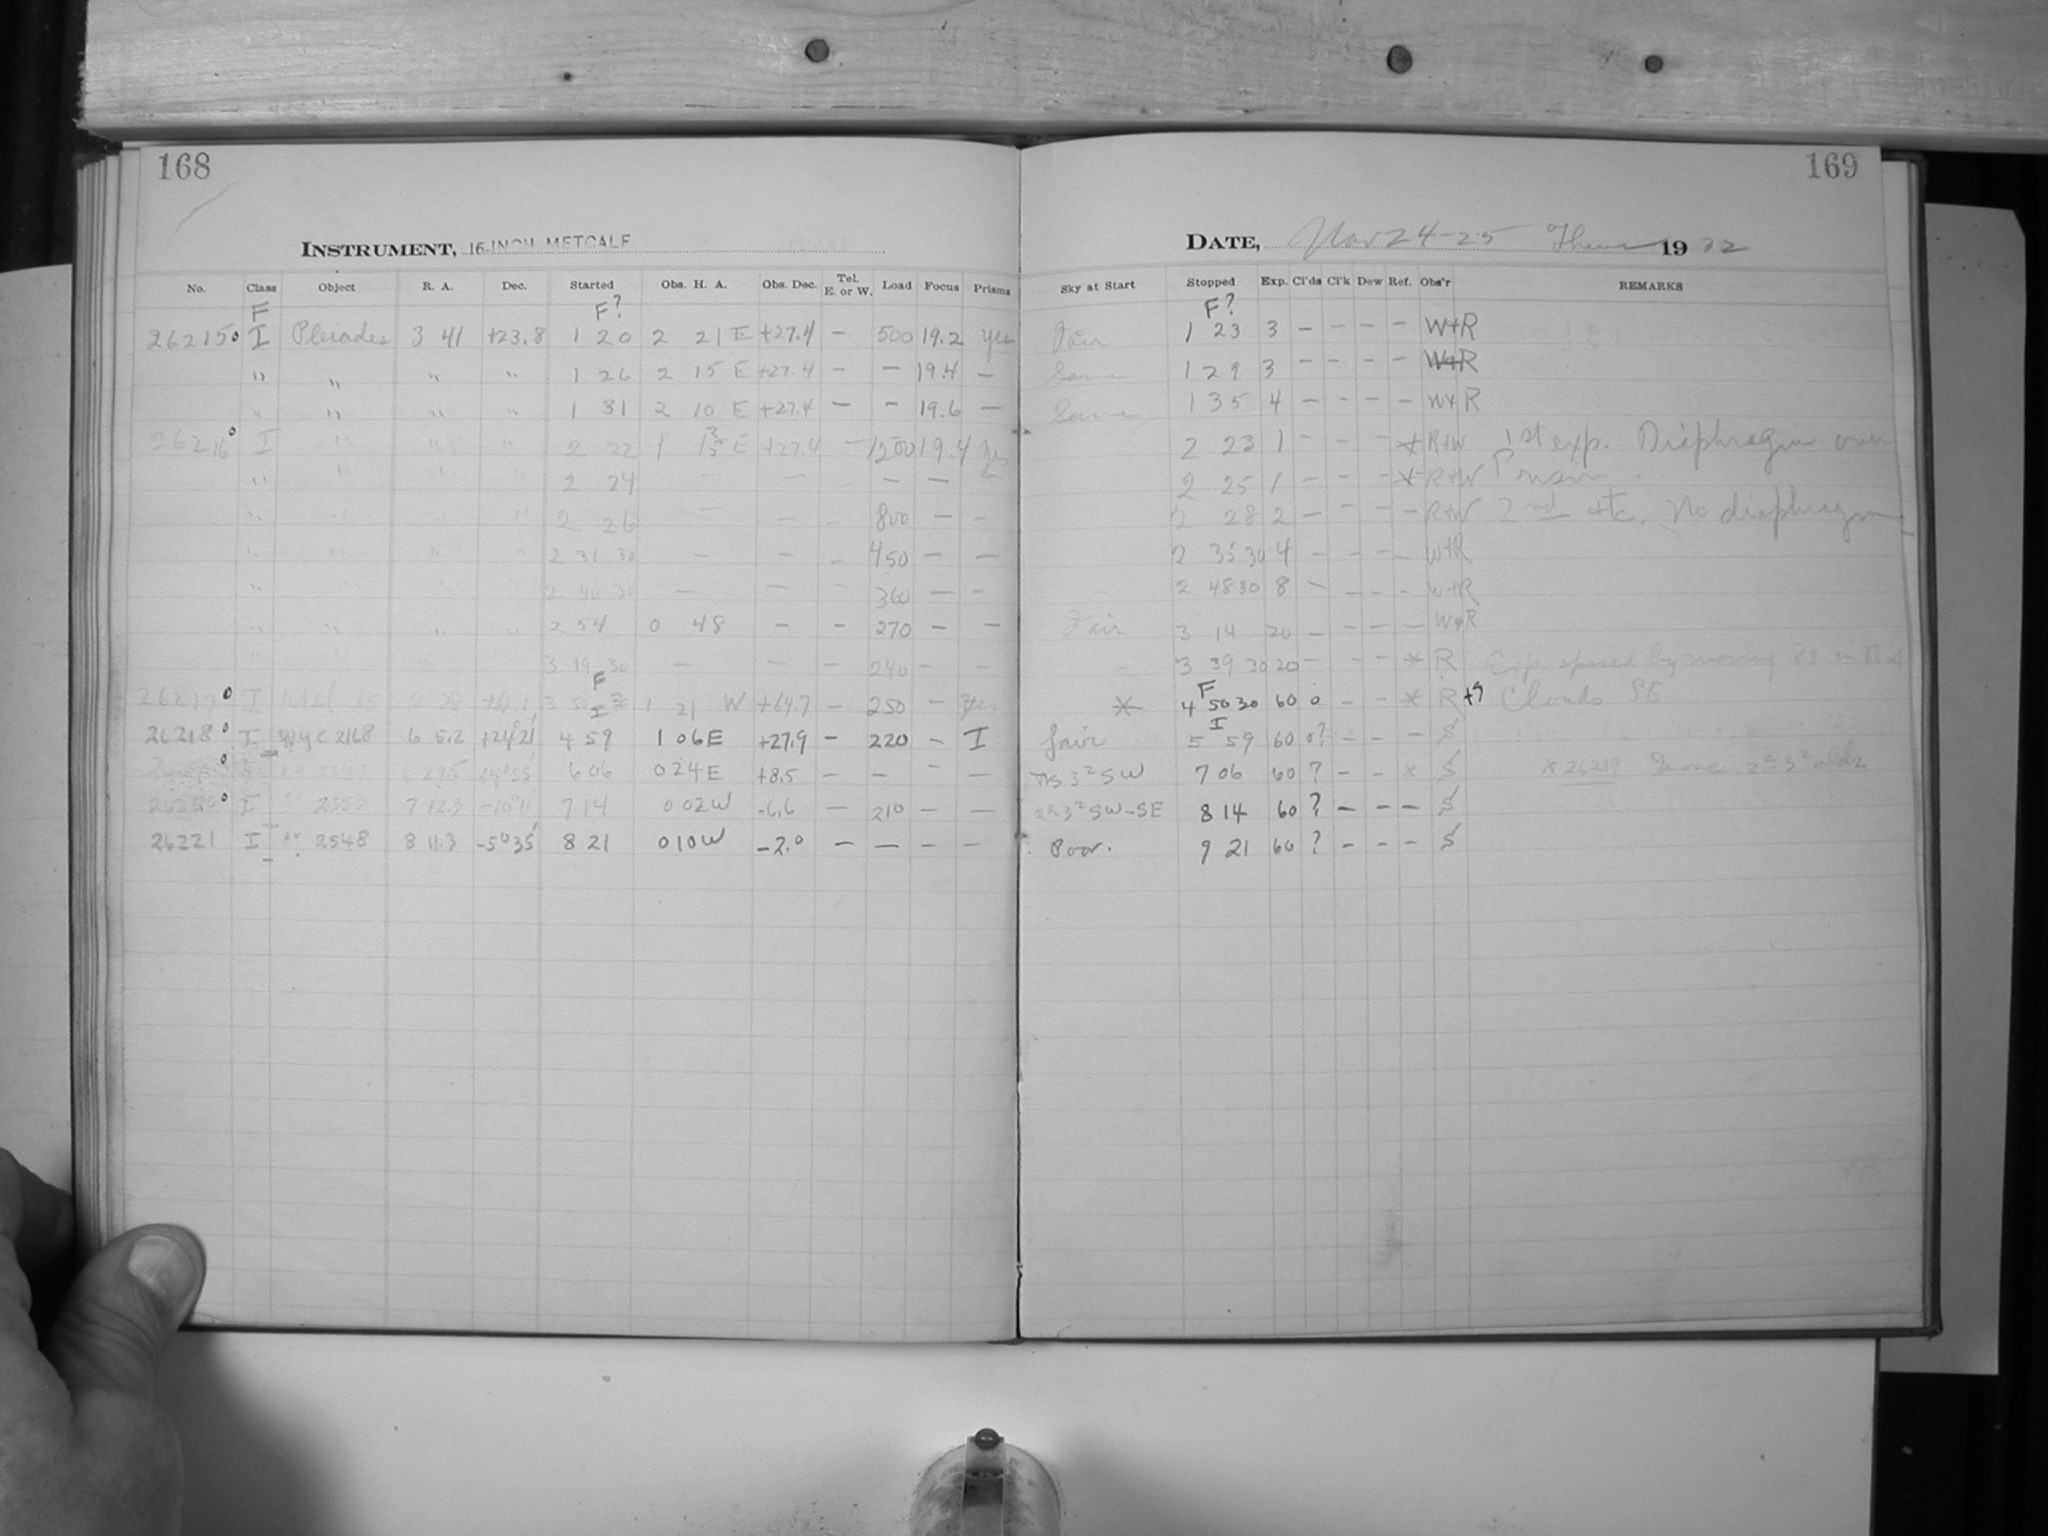 168
169
INSTRUMENT, 16-INCH METCALF
DATE, Nov 24-25 Thurs 1932
No. Class Object R. A. Dec. Started Obs. H. A. Obs. Dec. Tel. E. or W. Load Focus Prisms
Sky at Start Stopped Exp. Cl'ds Cl'k Dew Ref. Obs'r REMARKS
F F? F?
26215 I Pleiades 3 41 +23.8 1 20 2 21 E +27.4 – 500 19.2 yes Fair 1 23 3 – – – – W+R
" " " " 1 26 2 15 E +27.4 – – 19.4 – Same 1 29 3 – – – – W+R
" " " " 1 31 2 10 E +27.4 – – 19.6 – Same 1 35 4 – – – – W+R
26216 I " " " 2 22 1 E +27.4 – 1500 19.4 yes 2 23 1 – – – * R+W 1st exp. Diaphragm over
" " 2 24 – – – 2 25 1 – – – * R+W Prism.
" " " 2 26 – – – 800 – – 2 28 2 – – – – R+W 2nd etc. No diaphragm
" " " " 2 31 30 – – – 450 – – 2 35 30 4 – – – – W+R
" " " " 2 40 30 – – – 360 – – 2 48 30 8 – – – – W+R
" " " " 2 54 0 48 – – 270 – – Fair 3 14 20 – – – – W+R
3 19 30 – – – 240 – – 3 39 30 20 – – – * R Exp. spaced by moving in R A
F F
26217 I 3 50 30 1 21 W +64.7 – 250 – yes * 4 50 30 60 0 – – * R+? Clouds SE
I I
26218 I 2168 6 5.2 +24°21' 4 59 1 06 E +27.9 – 220 – I fair 5 59 60 0? – – – S
6 06 0 24 E +8.5 – – – – 3² SW 7 06 60 ? – – x S * 26219
I " 2352 7 12.3 -10°11' 7 14 0 02 W -6.6 – 210 – – 3² SW–SE 8 14 60 ? – – – S
26221 I " 2548 8 11.3 -5°35' 8 21 0 10 W -2.0 – – – – Poor. 9 21 60 ? – – – S